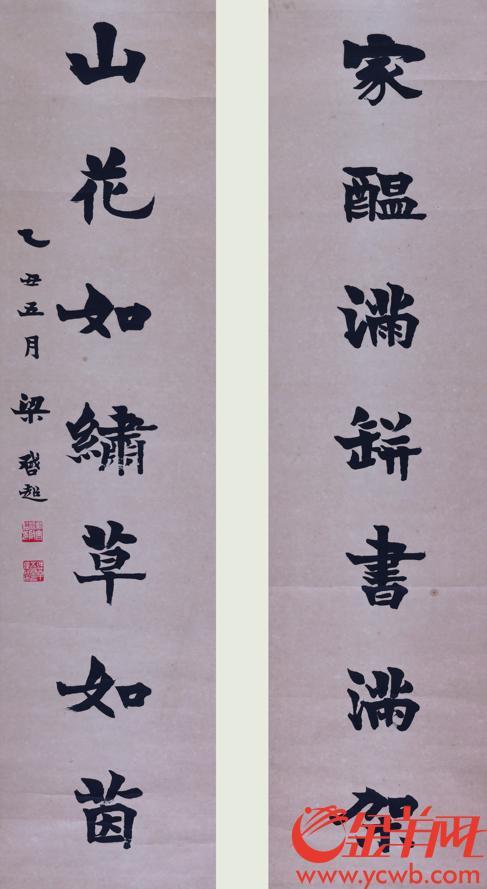 家醖滿缾書滿架
山花如繡草如茵
乙丑五月 梁啓超
金羊网
www.ycwb.com